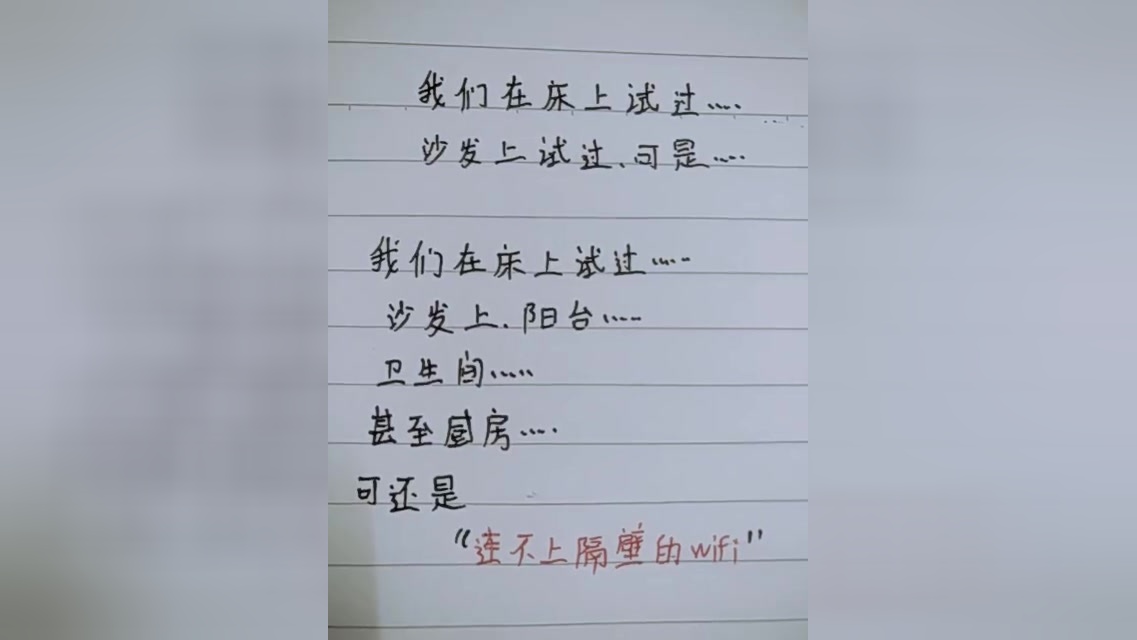 我们在床上试过....
沙发上试过.可是....
我们在床上试过.....
沙发上.阳台.....
卫生间.....
甚至厨房....
可还是
“连不上隔壁的wifi”